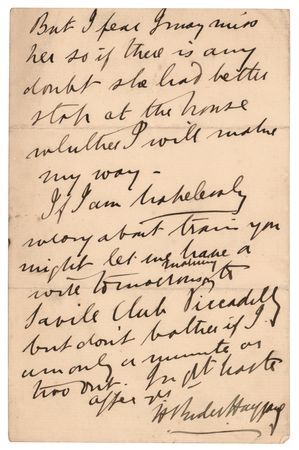 But I fear I may miss
her so if there is any
doubt she had better
stop at the house
whither I will make
my way –
If I am hopelessly
wrong about train you
might let me have a
wire tomorrow morning to
Savile Club Piccadilly
but don't bother if I
am only a minute or
two out. In gt haste
H Rider Haggard